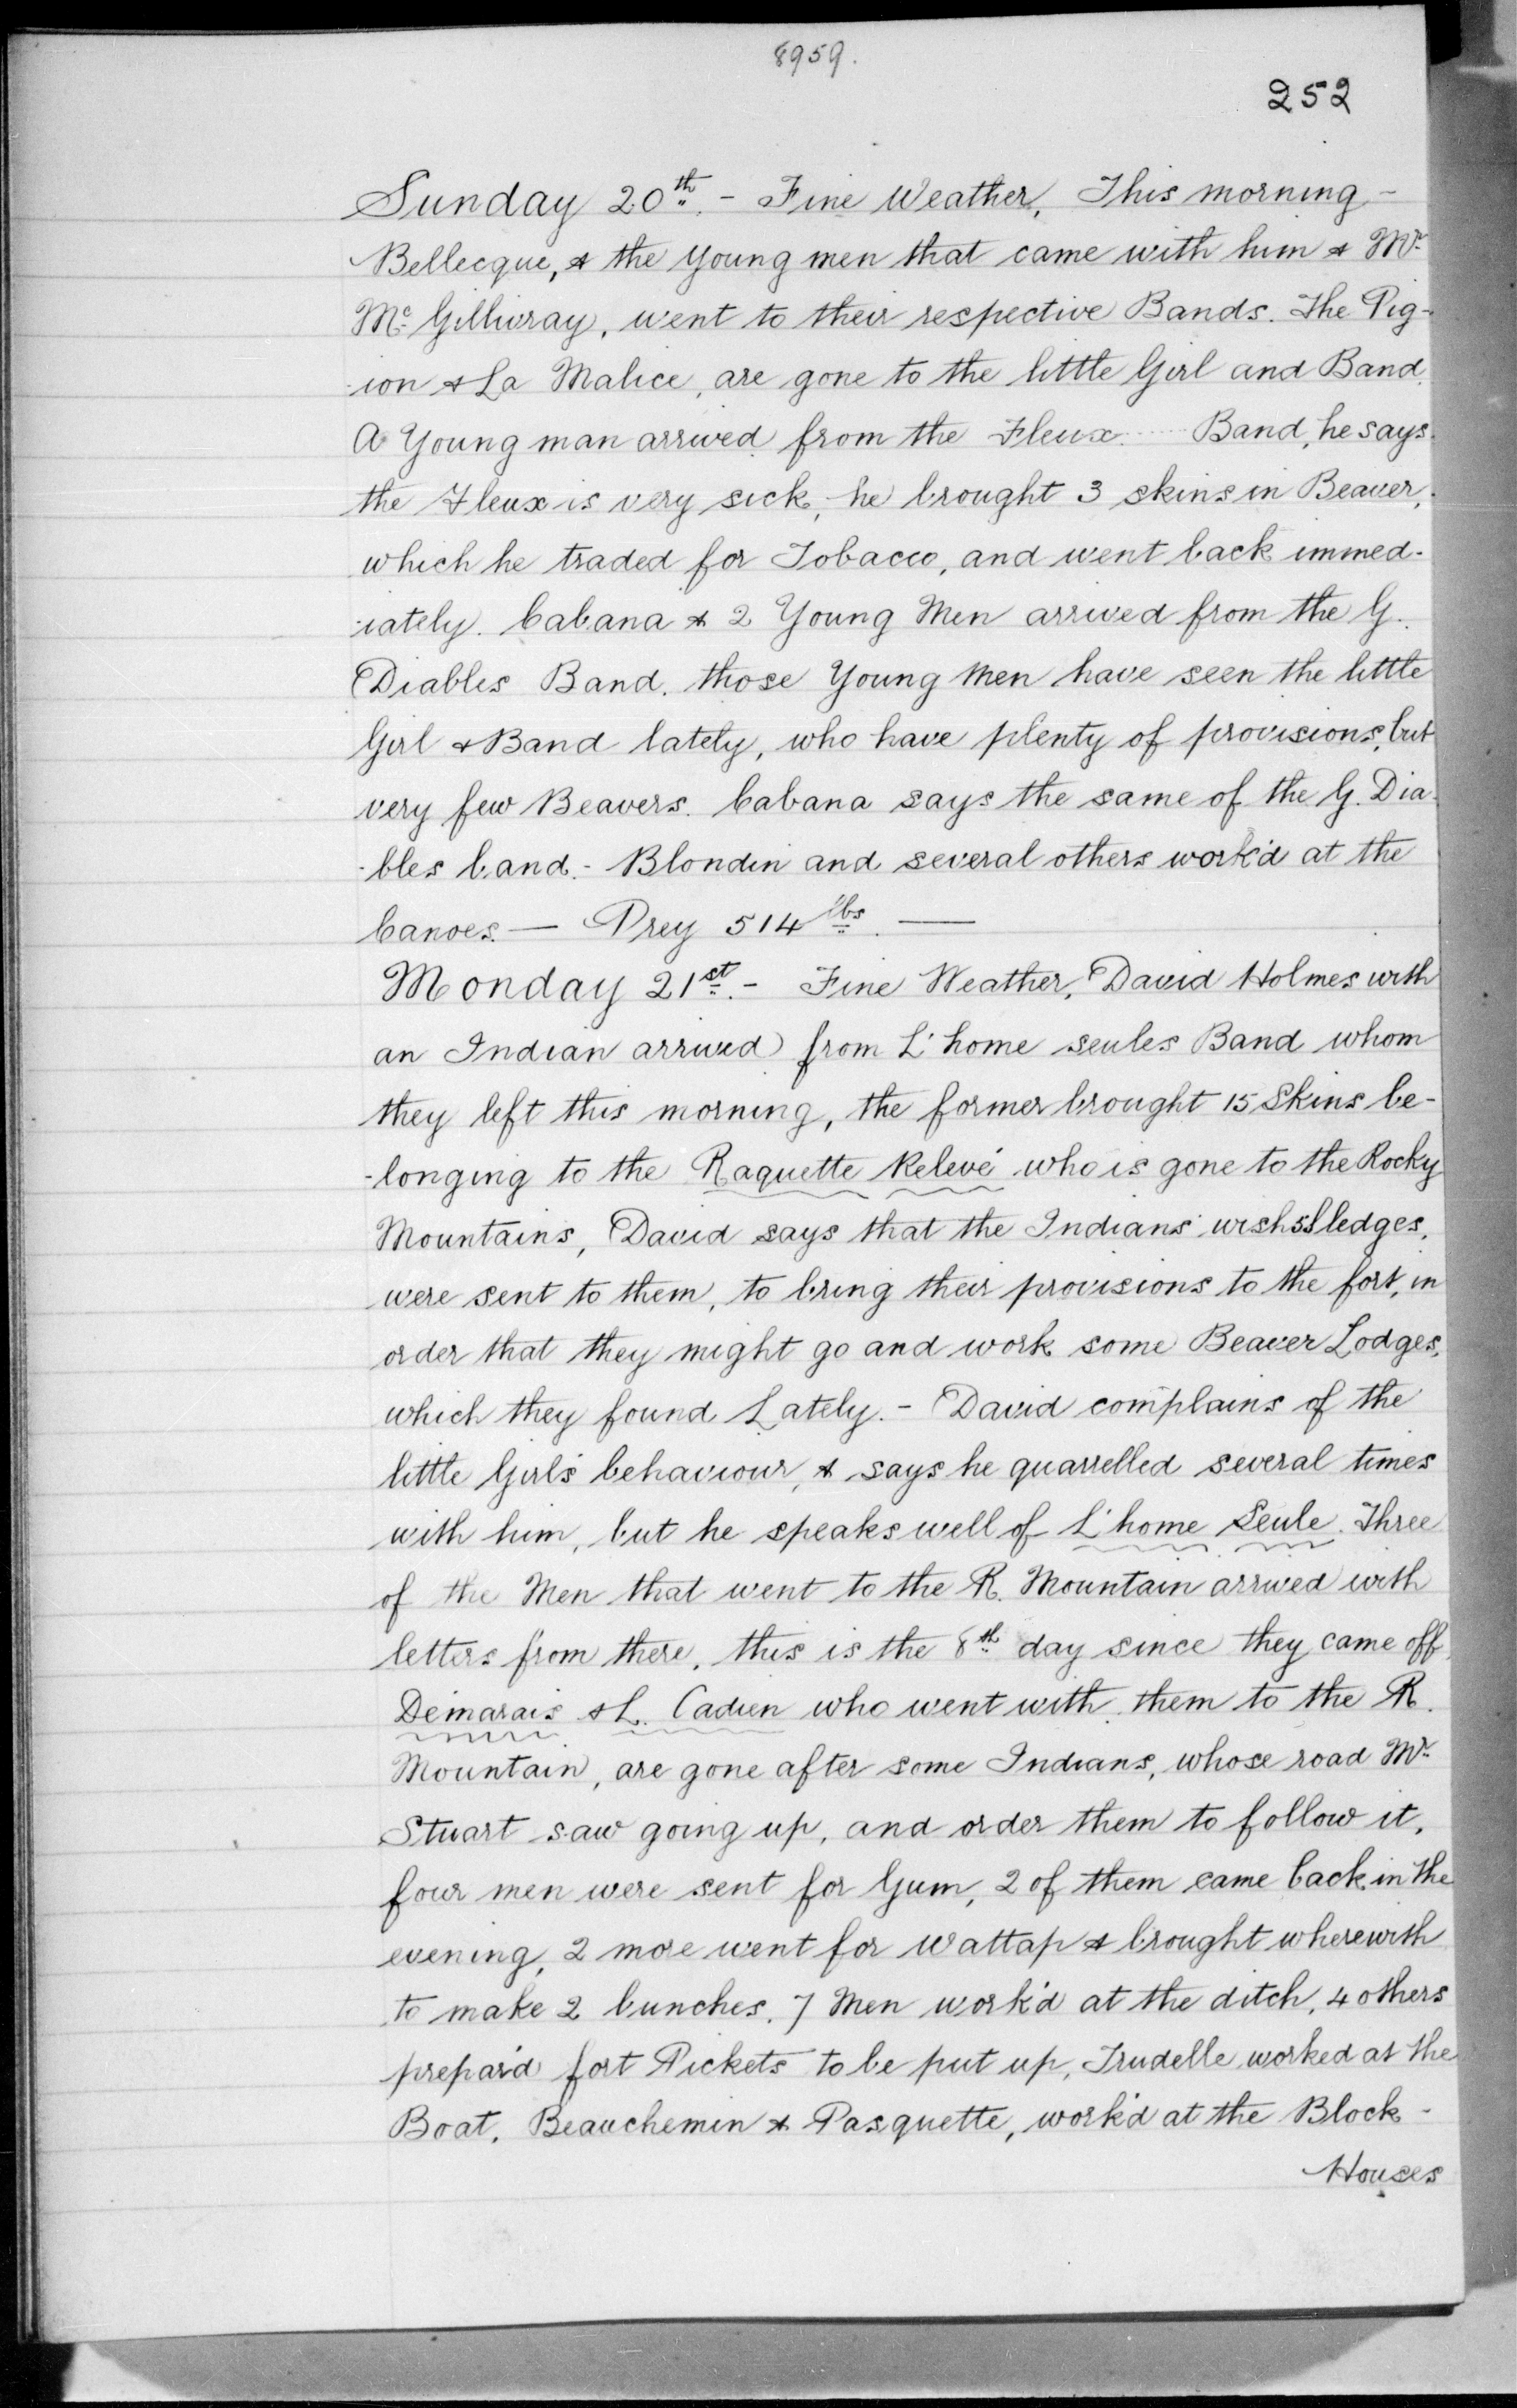 8959.
252
Sunday 20th. - Fine Weather, This morning -
Bellecque, & the young men that came with him & Mr.
Mc. Gillivray, went to their respective Bands. The Pig-
-ion & La Malice, are gone to the little Girl and Band.
A Young man arrived from the Fleux ..... Band, he says.
the Fleux is very sick, he brought 3 skins in Beaver,
which he traded for Tobacco, and went back immed-
-iately. Cabana & 2 Young Men arrived from the G.
Diables Band. those Young Men have seen the little
Girl & Band lately, who have plenty of provisions, but
very few Beavers. Cabana says the same of the G. Dia-
-bles band. - Blondin and several others work'd at the
Canoes. — Prey 514 lbs. —
Monday 21st. - Fine Weather, David Holmes with
an Indian arrived from L'home seules Band whom
they left this morning, the former brought 15 Skins be-
-longing to the Raquette Relevé who is gone to the Rocky
Mountains, David says that the Indians wish Sledges,
were sent to them, to bring their provisions to the fort, in
order that they might go and work some Beaver Lodges,
which they found Lately. - David complains of the
little Girl's behaviour, & says he quarrelled several times
with him, but he speaks well of L'home Seule. Three
of the Men that went to the R. Mountain arrived with
letters from there, this is the 8th day since they came off,
Demarais & L. Cadien who went with them to the R.
Mountain, are gone after some Indians, whose road Mr.
Stuart saw going up, and order them to follow it,
four men were sent for Gum, 2 of them came back in the
evening, 2 more went for Wattap & brought wherewith
to make 2 bunches. 7 Men work'd at the ditch, 4 others
prepar'd fort Pickets to be put up, Trudelle worked at the
Boat, Beauchemin & Pasquette, work'd at the Block -
Houses